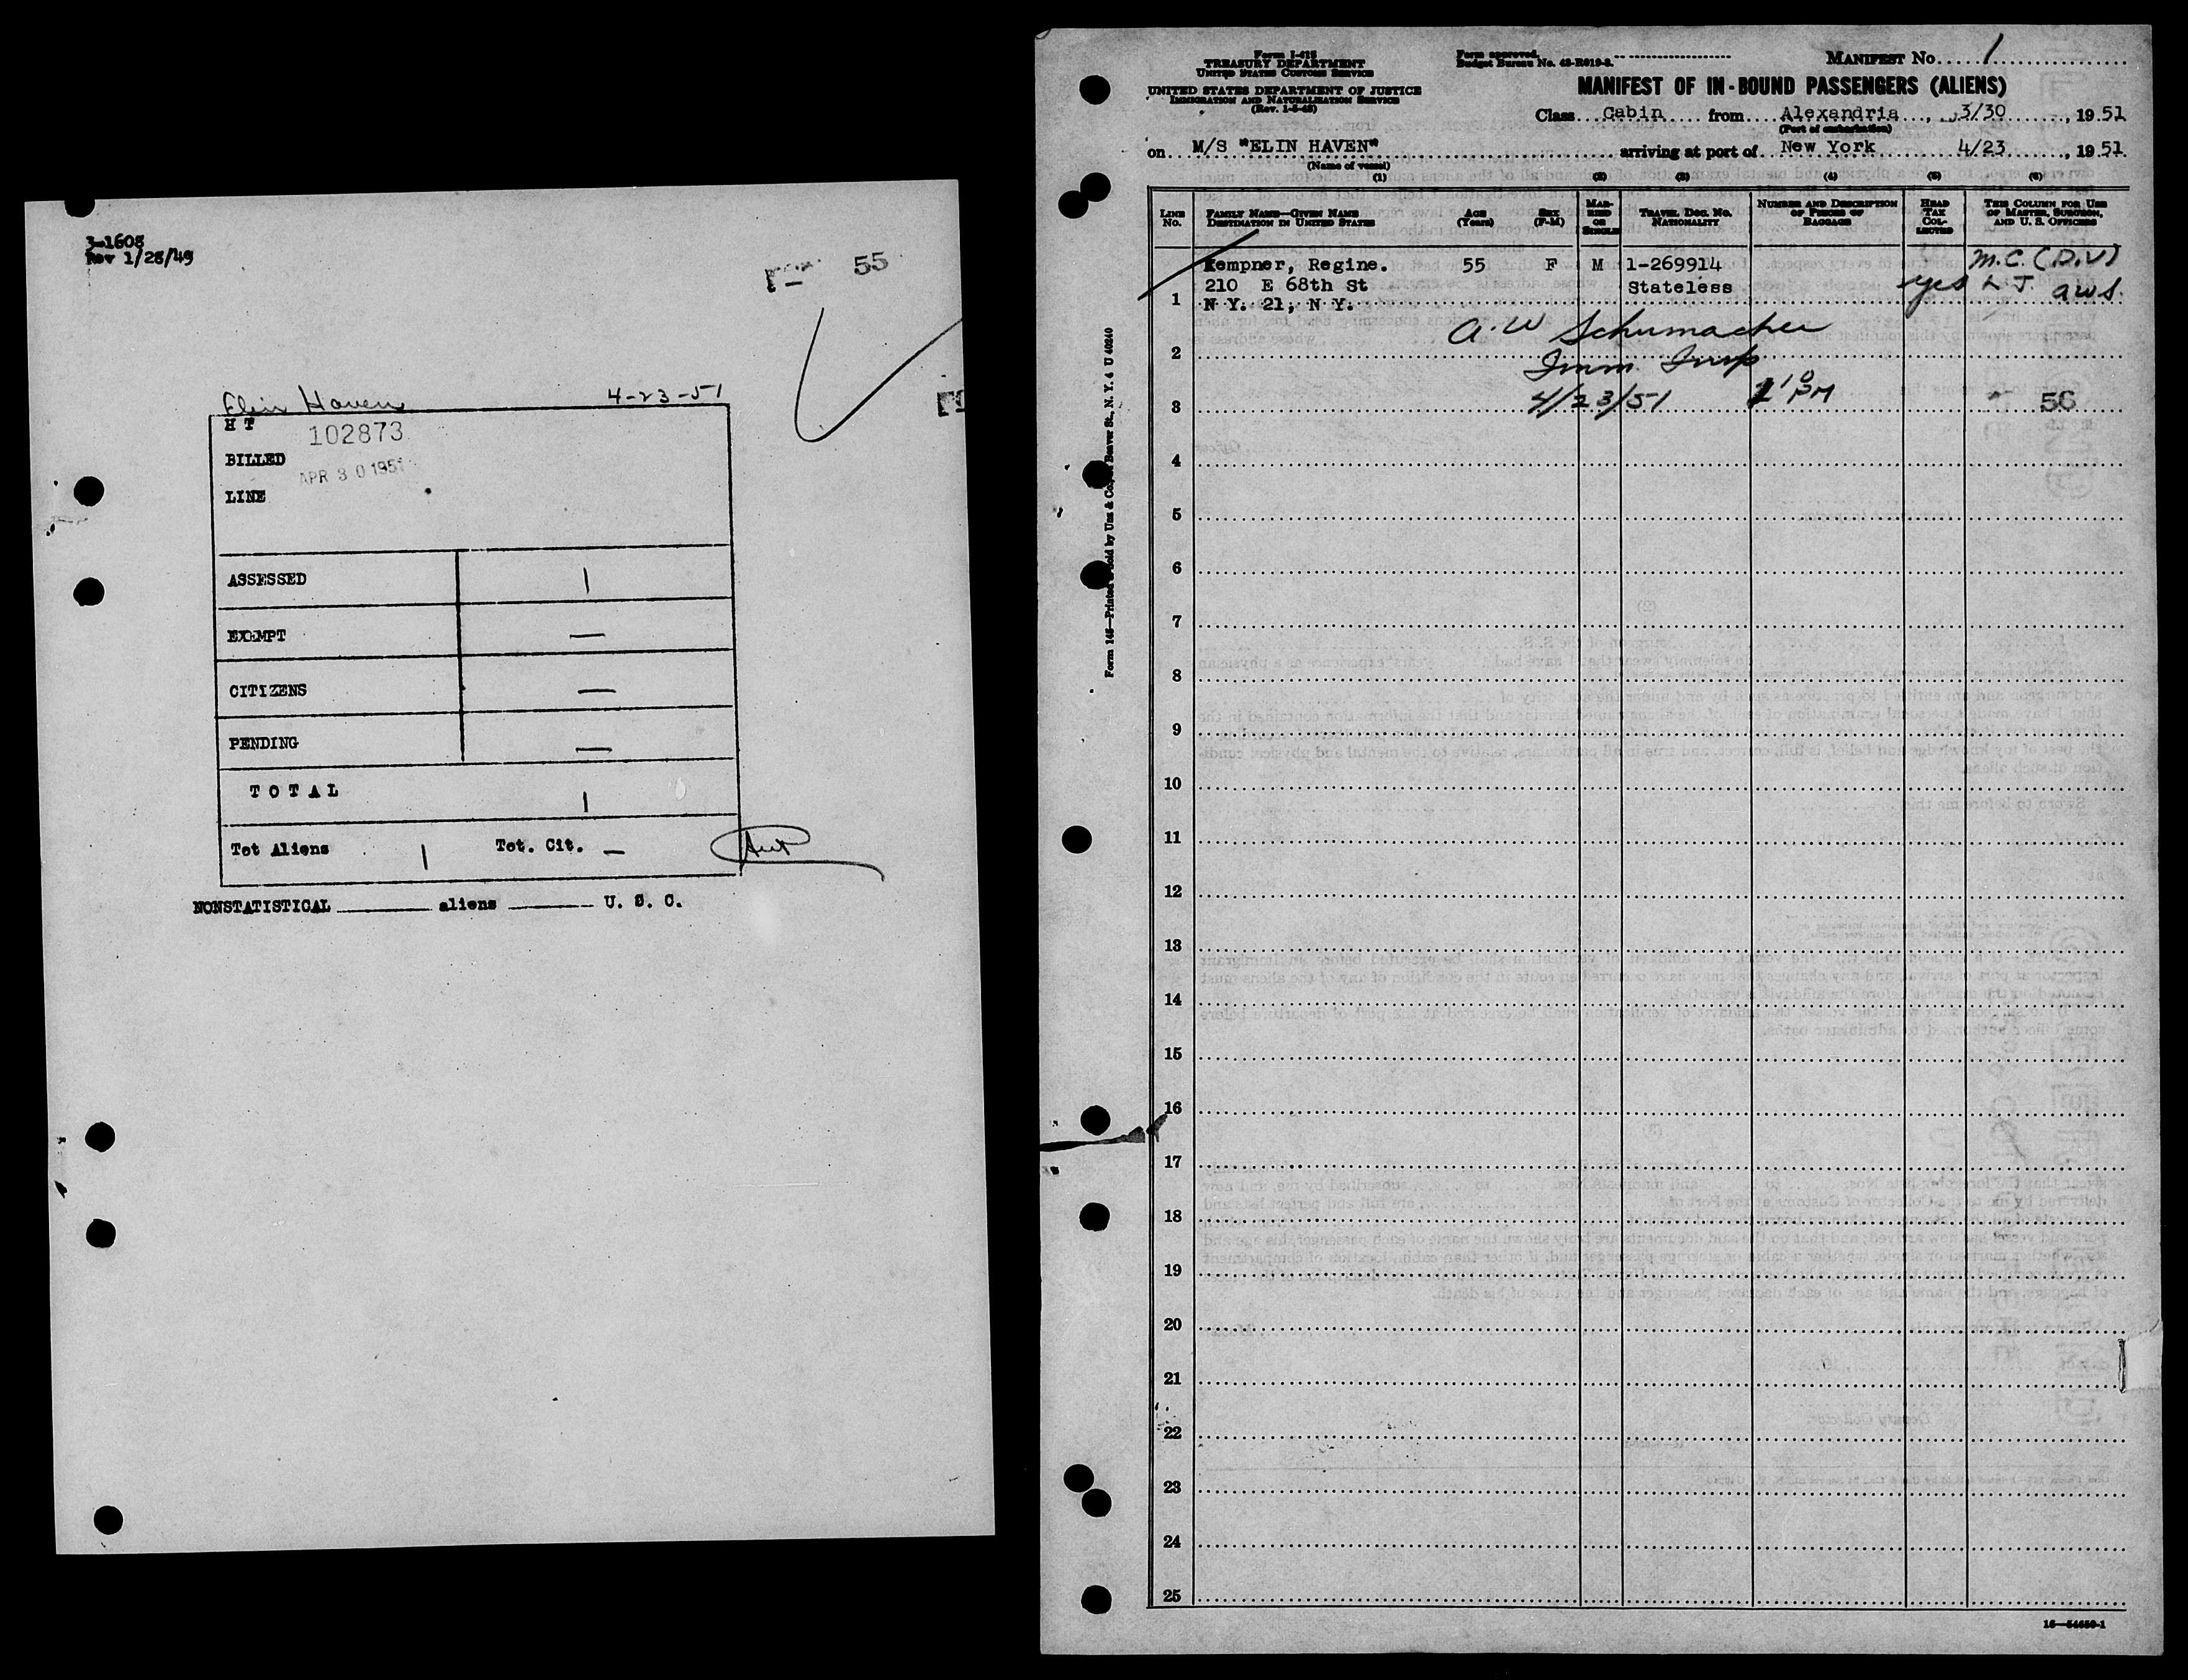 3-1608
Rev 1/28/49
55
Elin Haven 4-23-51
H T 102873
BILLED
APR 30 1951
LINE
ASSESSED 1
EXEMPT —
CITIZENS —
PENDING —
T O T A L 1
Tot Aliens 1 Tot. Cit. —
NONSTATISTICAL aliens U. S. C.
Form I-415
TREASURY DEPARTMENT
UNITED STATES CUSTOMS SERVICE
UNITED STATES DEPARTMENT OF JUSTICE
IMMIGRATION AND NATURALIZATION SERVICE
(Rev. 1-5-48)
Form approved.
Budget Bureau No. 43-R019-3.
MANIFEST No. 1
MANIFEST OF IN-BOUND PASSENGERS (ALIENS)
Class Cabin from Alexandria, 3/30, 1951
(Port of embarkation)
on M/S "ELIN HAVEN" arriving at port of New York 4/23, 1951
(Name of vessel)
(1) (2) (3) (4) (5) (6)
LINE No.
FAMILY NAME—GIVEN NAME
DESTINATION IN UNITED STATES
AGE (Years)
SEX (F-M)
MARRIED OR SINGLE
TRAVEL DOC. NO. NATIONALITY
NUMBER AND DESCRIPTION OF PIECES OF BAGGAGE
HEAD TAX COLLECTED
THIS COLUMN FOR USE OF MASTER, SURGEON, AND U. S. OFFICERS
Kempner, Regine. 55 F M 1-269914 M.C. (D.V)
210 E 68th St Stateless yes L J aws.
1 N Y. 21, N Y.
A. W Schumacher
2 Imm Insp
3 4/23/51 1 10 PM 56
4
5
6
7
8
9
10
11
12
13
14
15
16
17
18
19
20
21
22
23
24
25
Form 145—Printed & Sold by Unz & Co., Beaver St., N. Y. 4 U 40240